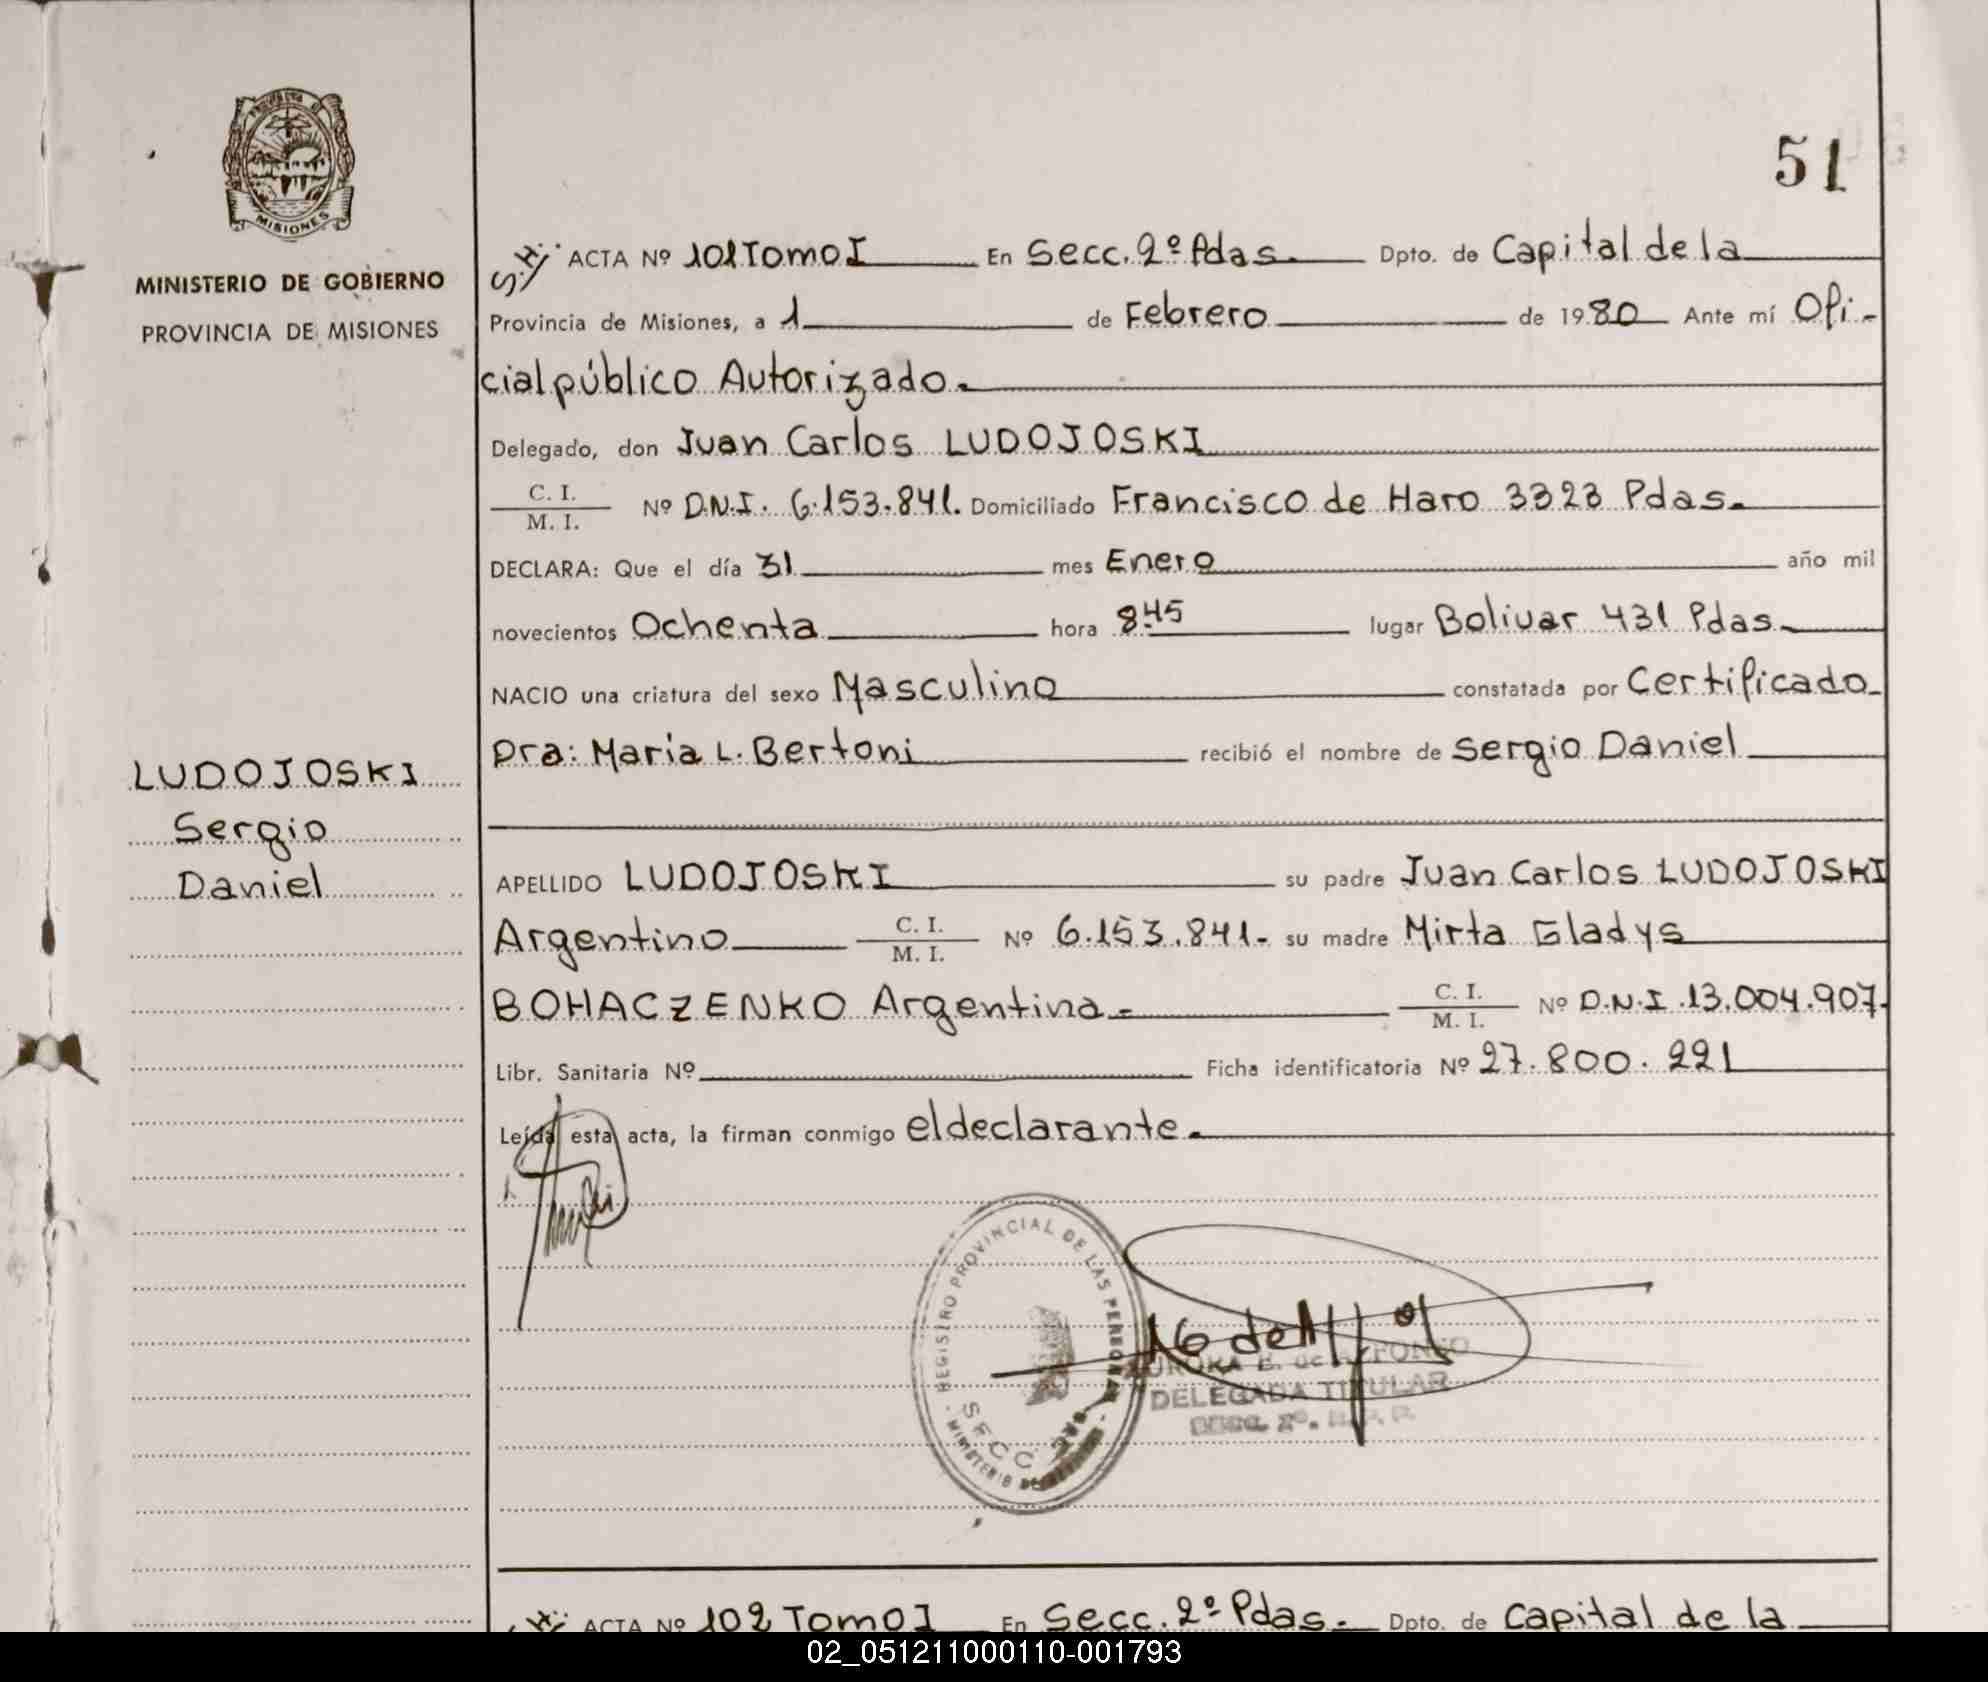 51
MISIONES
MINISTERIO DE GOBIERNO
PROVINCIA DE MISIONES
LUDOJOSKI
Sergio
Daniel
ACTA Nº 101 Tomo I En Secc. 2º Pdas. Dpto. de Capital de la
Provincia de Misiones, a 1 de Febrero de 1980 Ante mí Ofi-
cial público Autorizado.
Delegado, don Juan Carlos LUDOJOSKI
C. I.
M. I. Nº D.N.I. 6.153.841. Domiciliado Francisco de Haro 3323 Pdas.
DECLARA: Que el día 31 mes Enero año mil
novecientos Ochenta hora 8.45 lugar Bolivar 431 Pdas.
NACIO una criatura del sexo Masculino constatada por Certificado
Dra: Maria L. Bertoni recibió el nombre de Sergio Daniel
APELLIDO LUDOJOSKI su padre Juan Carlos LUDOJOSKI
Argentino C. I. M. I. Nº 6.153.841. su madre Mirta Gladys
BOHACZENKO Argentina.- C. I. M. I. Nº D.N.I. 13.004.907.
Libr. Sanitaria Nº Ficha identificatoria Nº 27.800.221
Leída esta acta, la firman conmigo el declarante.
REGISTRO PROVINCIAL DE LAS PERSONAS
SECC
MINISTERIO DE
DELEGADA TITULAR
ACTA Nº 102 Tomo I En Secc. 2º Pdas. Dpto. de Capital de la
02_051211000110-001793